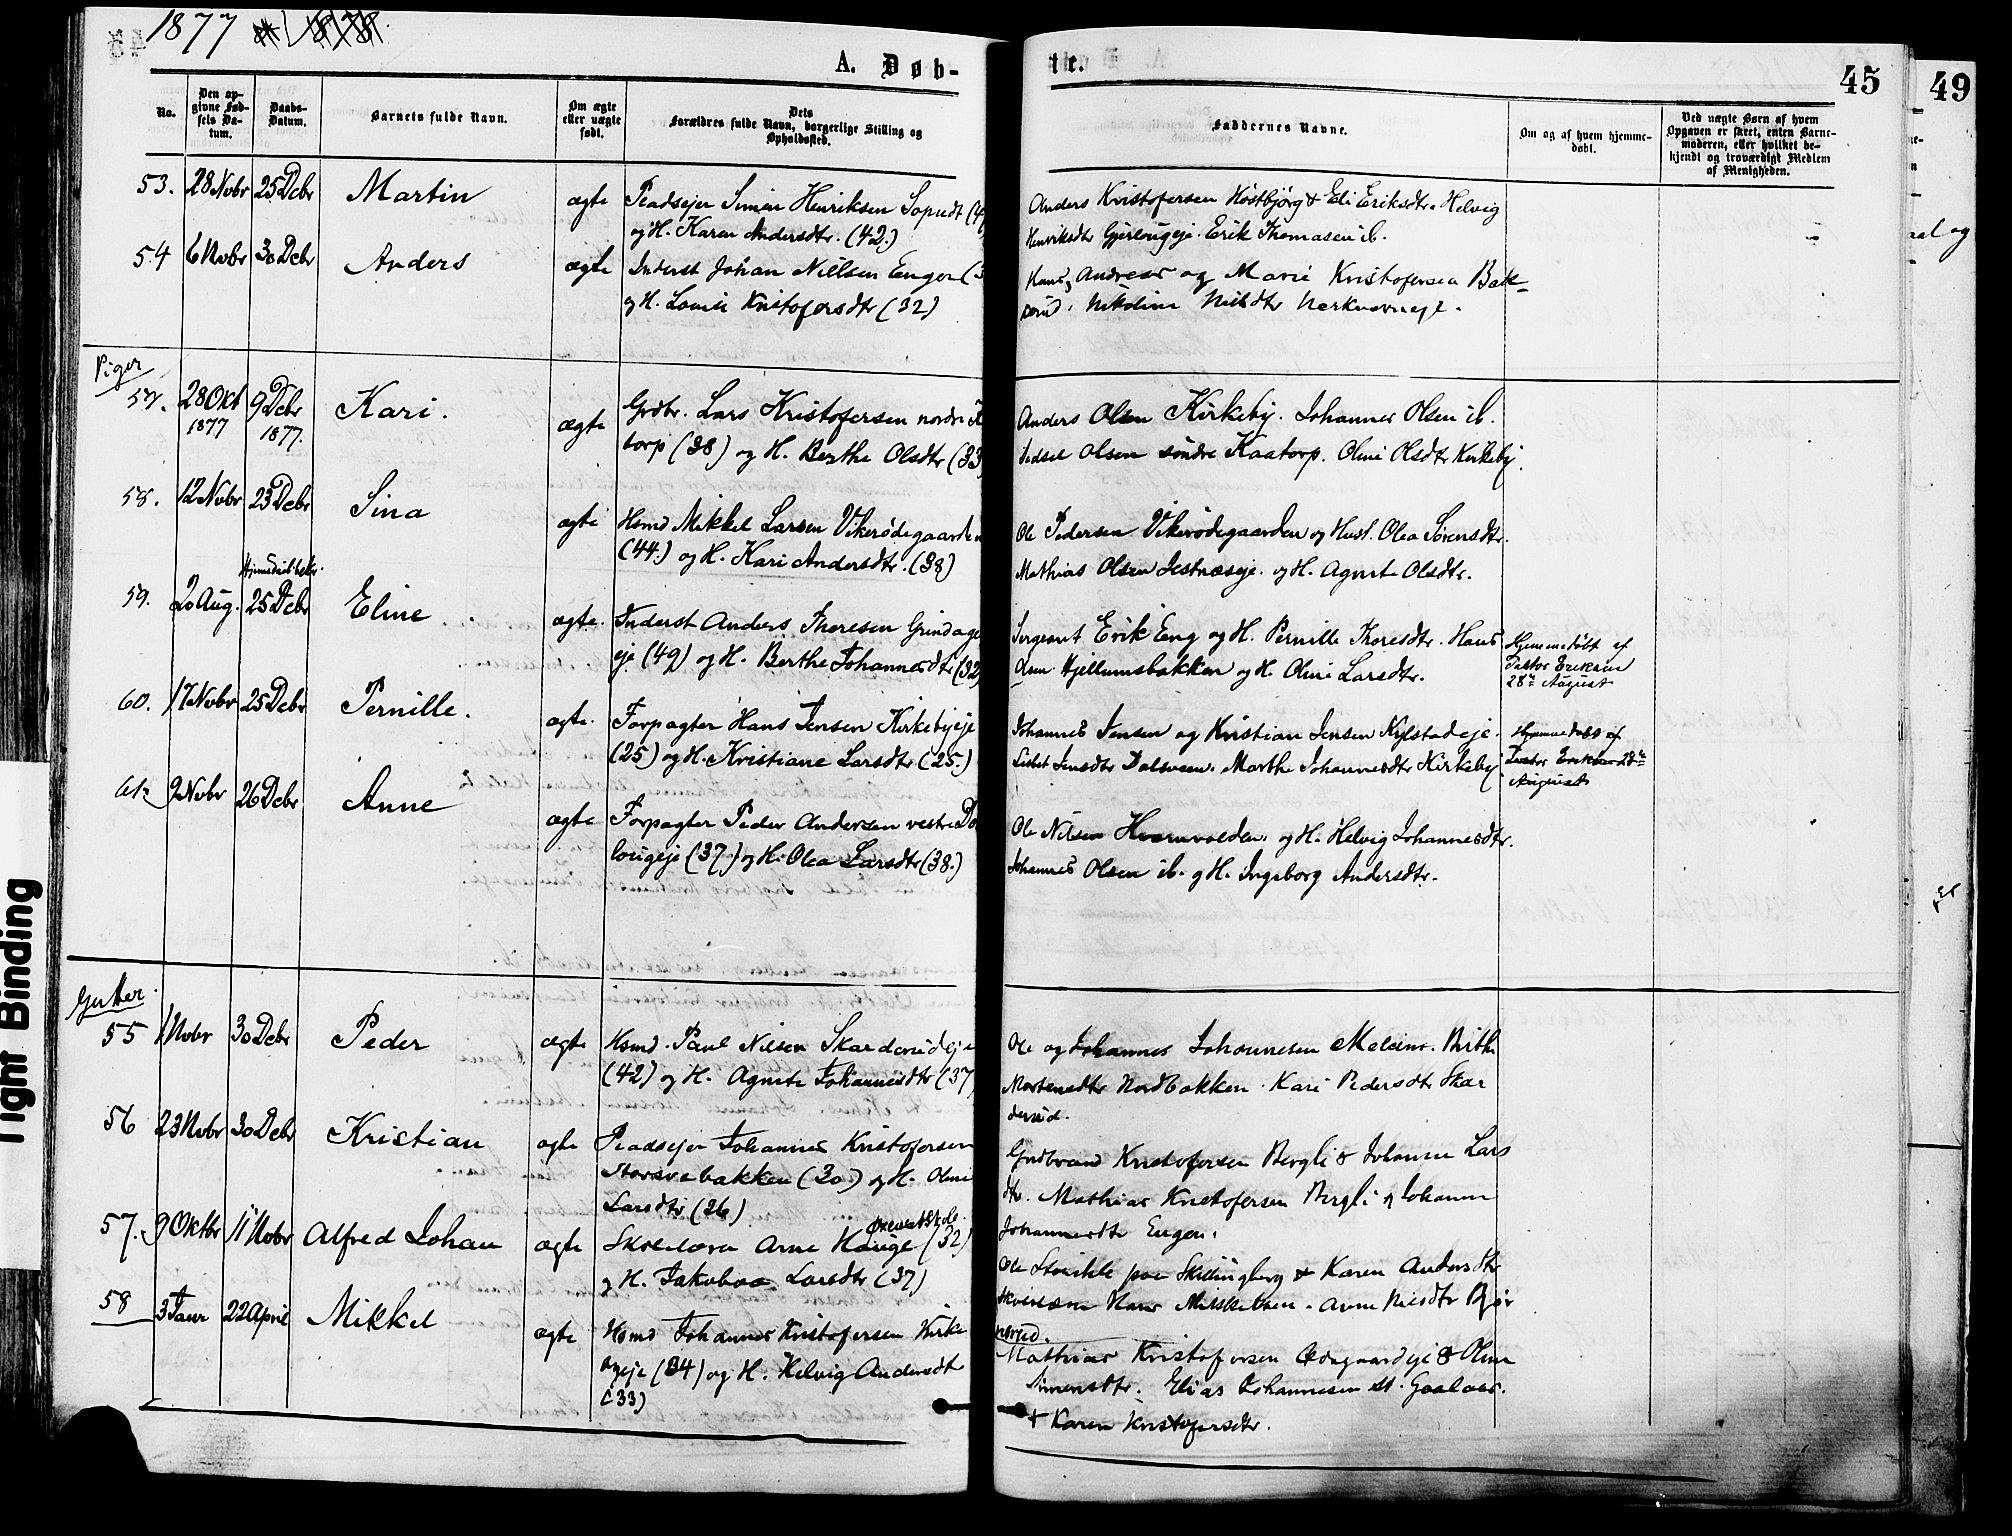 1877
A. Døb-
te.
45
49
No.
Den op-
givne Fød-
sels Da-
tum.
Daabs-
Datum.
Barnets fulde Navn.
Om ægte
eller uægte
født.
Dets
Forældres fulde Navn, borgerlige Stilling og
Opholdssted.
Faddernes Navne.
Om og af hvem hjemme-
døbt.
Ved uægte Børn af hvem
Opgaven er skeet, enten Barne-
moderen, eller hvilket be-
kjendt og troværdigt Medlem
af Menigheden.
53. 28 Novbr 25 Debr Martin ægte Pladsejer Simen Henriksen
og H. Karen Andersdtr. (42.)
Anders Kristofersen Høstbjørg & Eli Eriksdtr. Helvig
Henriksdtr Erik Thomasen ib.
54 6 Novbr 30 Debr Anders ægte Inderst Johan Nielsen Engen
og H. Lovise Kristofersdtr (32)
Hans, Andreas og Marie Kristofersen Bak=
Nikoline Nilsdtr
Piger
57. 28 Okt 9 Debr Kari. ægte Grdbr. Lars Kristofersen nordre
1877 1877.
torp (38) og H. Berthe Olsdtr (33
Anders Olsen Kirkeby. Johannes Olsen ib.
Olsen søndre Kaatorp. Oline Olsdtr Kirkeby.
58. 12 Novbr 23 Debr Sina ægte Hsmd Mikkel Larsen Vikerødegaarden
(44.) og H. Kari Andersdtr. (38)
Ole Pedersen Vikerødegaarden og Hust. Olea Sørensdtr.
Mathias Olsen og H. Agnete Olsdtr.
59. 20 Aug. 25 Debr Eline ægte. Inderst Anders Thoresen
eje (49) og H. Berthe Johannesdtr (32)
Sergeant Erik Eng og H. Pernille Thoresdtr. Hans
Olsen Hjellumsbakken og H. Oline Larsdtr.
Hjemmedøbt af
Pastor Eriksen
28de August
60. 17 Novbr 25 Debr Pernille. ægte. Forpagter Hans Jensen Kirkebyeje
(25) og H. Kristiane Larsdtr (25.)
Johannes Jensen og Kristian Jensen Kylstadeje.
Lisbet Jensdtr Dalsveen. Marthe Johannesdtr Kirkeby
61. 9 Novbr 26 Debr Anne ægte Forpagter Peder Andersen vestre
(37.) og H. Olea Larsdtr (38.)
Ole Nilsen Hvarnvolden. og H. Helvig Johannesdtr.
Johannes Olsen ib. og H. Ingeborg Andersdtr.
Gutter.
55 1 Novbr 30 Debr Peder ægte Hsmd. Paul Nilsen Skarderudeje
(42) og H. Agnete Johannesdtr (37
Ole og Johannes Johannesen Brithe
Mortensdtr Nordbakken. Kari Pedersdtr Skar
derud.
56 23 Novbr 30 Debr Kristian ægte Pladsejer Johannes Kristofersen
(30) og H. Oline
Larsdtr (26)
Gudbrand Kristofersen Bergli & Johanne Lars
dtr. Mathias Kristofersen Bergli og Johanne
Johannesdtr Engen.
57. 9 Oktbr 11 Novbr Alfred Johan ægte Skolelærer Arne Hauge (32)
og H. Jakobea Larsdtr (37)
Ole paa Skillingberg & Karen Andersdtr
Skolelærer Hans Mikkelsen. Anne Nilsdtr
58 3 Janr 22 April Mikkel ægte Hsmd Johannes Kristofersen Kirke
byeje (34) og H. Helvig Andersdtr
(33)
Mathias Kristofersen Ødegaardeje & Oline
Simensdtr. Elias Johannesen
& Karen Kristofersdtr.
Tight Binding